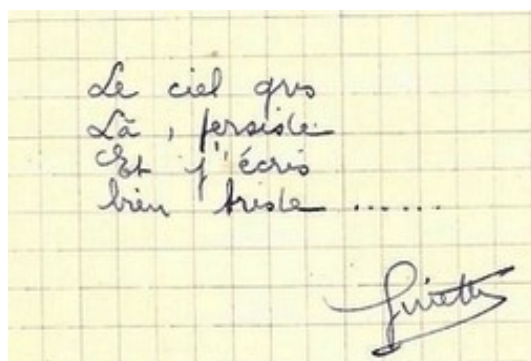 Le ciel gris
Là, persiste
Et j'écris
bien triste ......